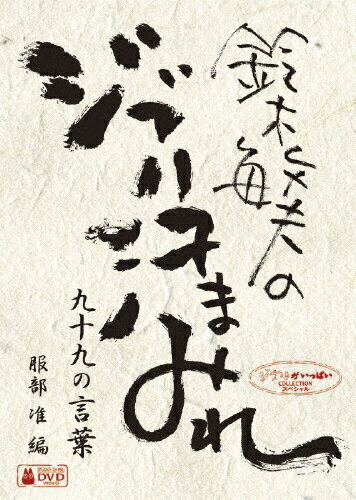 鈴木敏夫の
ジブリ汗まみれ
九十九の言葉
服部准 編
ジブリがいっぱい
COLLECTION
スペシャル
STUDIO GHIBLI
DVD
VIDEO